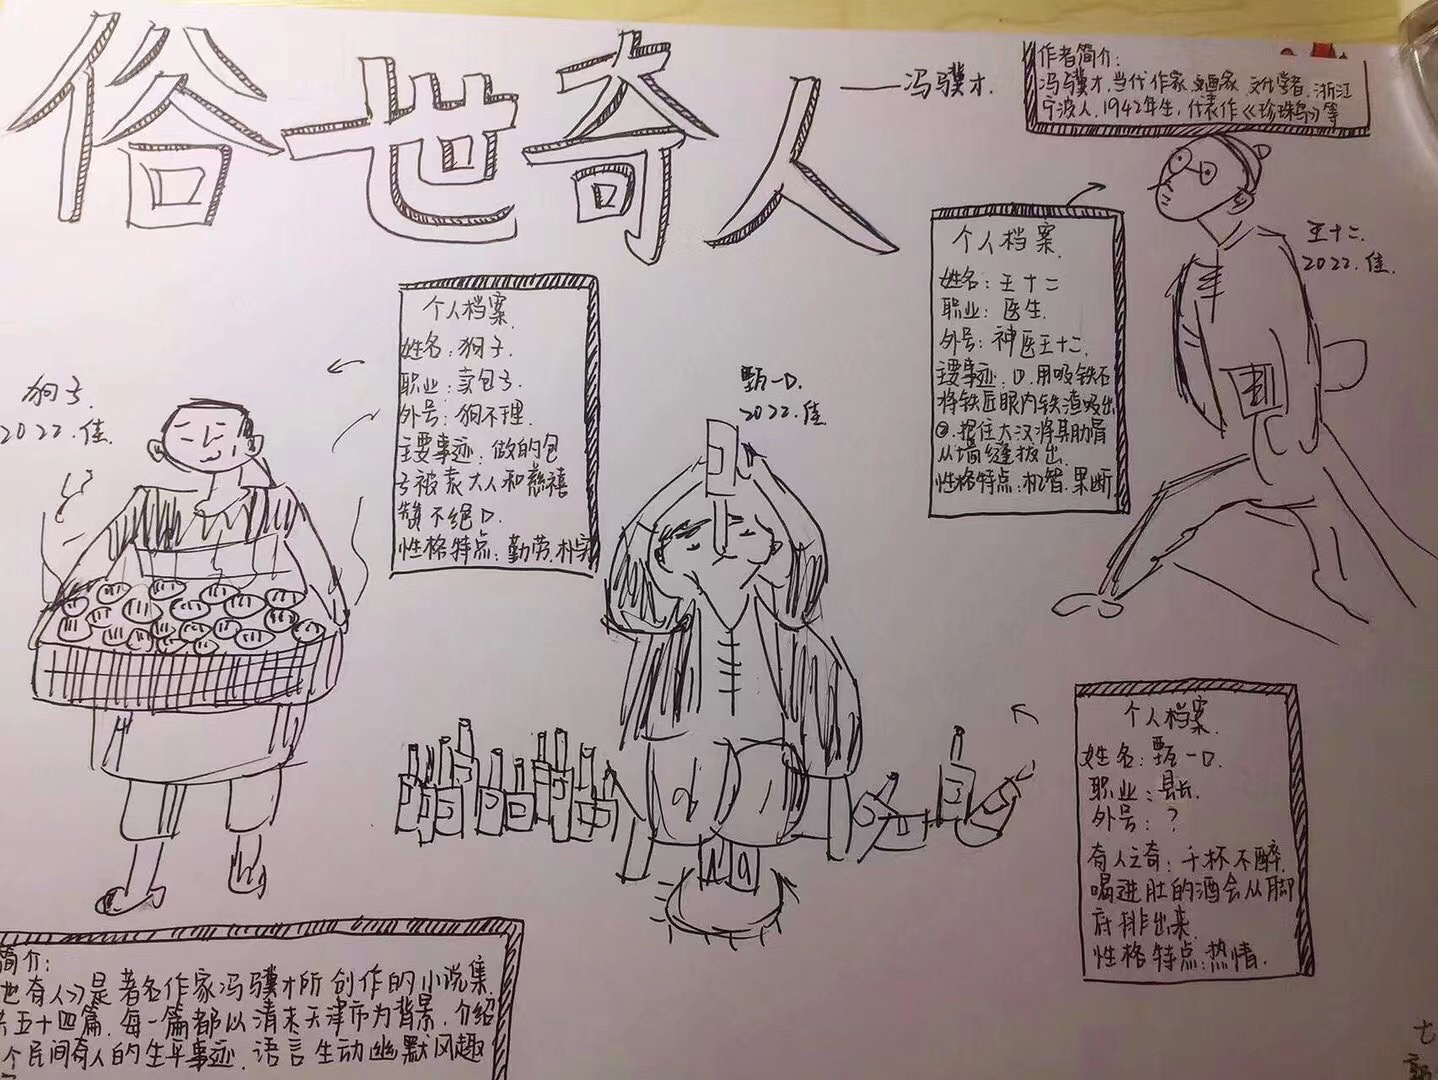 俗世奇人
——冯骥才.
作者简介:
冯骥才.当代作家.画家.文化学者.浙江
宁波人.1942年生,代表作《珍珠鸟》等
个人档案.
姓名:王十二
职业:医生.
外号:神医王十二.
主要事迹:①.用吸铁石
将铁匠眼内铁渣吸出
②.把住大汉将其肋骨
从墙缝拔出.
性格特点:机智.果断
王十二.
2022.佳.
个人档案.
姓名:狗子.
职业:卖包子.
外号:狗不理.
主要事迹.做的包
子被袁大人和慈禧
赞不绝口.
性格特点:勤劳.朴实
狗子.
2022.佳.
甄一口.
2022.佳.
个人档案.
姓名:甄一口.
职业:县长.
外号:?
奇人之奇:千杯不醉.
喝进肚的酒会从脚
底排出来.
性格特点:热情.
简介:
世奇人》是著名作家冯骥才所创作的小说集.
共五十四篇.每一篇都以清末天津市为背景.介绍
个民间奇人的生平事迹.语言生动幽默风趣
七